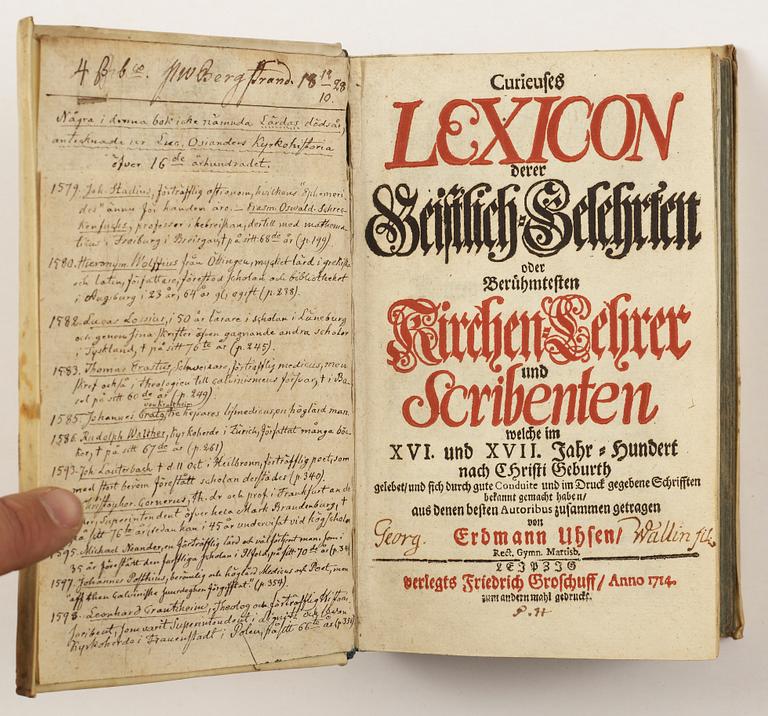 4 Bbco. Bergstrand. 18 18/10. 28
Några i denna bok icke nämnda Lärdas dödsår,
antecknade ur Luc. Osianders Kyrkohistoria
öfver 16de århundradet.
1579. Joh. Stadius, förträfflig astronom, hvilkens "Ephemeri-
des" ännu för handen äro. – Erasm. Oswald. Schrec-
kenfuchs, professor i hebreiskan, dertill med mathema-
ticus, i Freiburg i Breisgau, † på sitt 68de år (p. 199).
1580. Hieronym. Wolffius från Öttingen, mycket lärd i grekiska
och latin, författare, föreståd scholan och bibliotheket
i Augsburg i 23 år, 64 år gl. ogift (p. 238).
1582. Lucas Lossius, i 50 år lärare i scholan i Lüneburg
och genom sina skrifter äfven gagnande andra scholor
i Tyskland, † på sitt 76te år (p. 245).
1583. Thomas Erastus, Schweizare, förträfflig medicus, men
skref också i Theologien till calvinismens försvar, † i Ba-
sel på sitt 60de år (p. 249)
1585. Johannes Crato, tre kejsares lifmedicus, en höglärd man.
1586. Rudolph Walther, Kyrkoherde i Zürich, författat många böc-
ker, † på sitt 67de år (p. 261)
1593. Joh. Lauterbach † d 11 Oct i Heilbronn, förträfflig poet, som
med stort beröm förestått scholan derstädes (p. 340).
Christophor. Cornerus, th. dr och prof. i Frankfurt an der
Oder, Superintendent öfver hela Mark Brandenburg, †
på sitt 76te år, sedan han i 45 år undervisat vid högscholan
1595. Michael Neander, en förträfflig lärd och välförtjent man, som i
35 år förestått den furstliga scholan i Ilfeld, på sitt 70de år (p. 34
1597. Johannes Posthius, berömlig och höglärd Medicus och Poet, men
(p. 359).
1598. Leonhard Krentzheim, Theolog och förträfflig Histori-
Superintendent i Liegnitz och sedan
Kyrkoherde i Frauenstadt i Polen, på sitt 66te år (p. 33
Curieuses
LEXICON
derer
Geistlich-Gelehrten
oder
Berühmtesten
Kirchen-Lehrer
und
Scribenten
welche im
XVI. und XVII. Jahr-Hundert
nach Christi Geburth
gelebet/ und sich durch gute Conduite und im Druck gegebene Schrifften
bekannt gemacht haben/
aus denen besten Autoribus zusammen getragen
von
Georg. Erdmann Uhsen/ Wallin fil.
Rect. Gymn. Martisb.
LEIPZIG
verlegts Friedrich Groschuff/ Anno 1714.
zum andern mahl gedruckt.
P. H